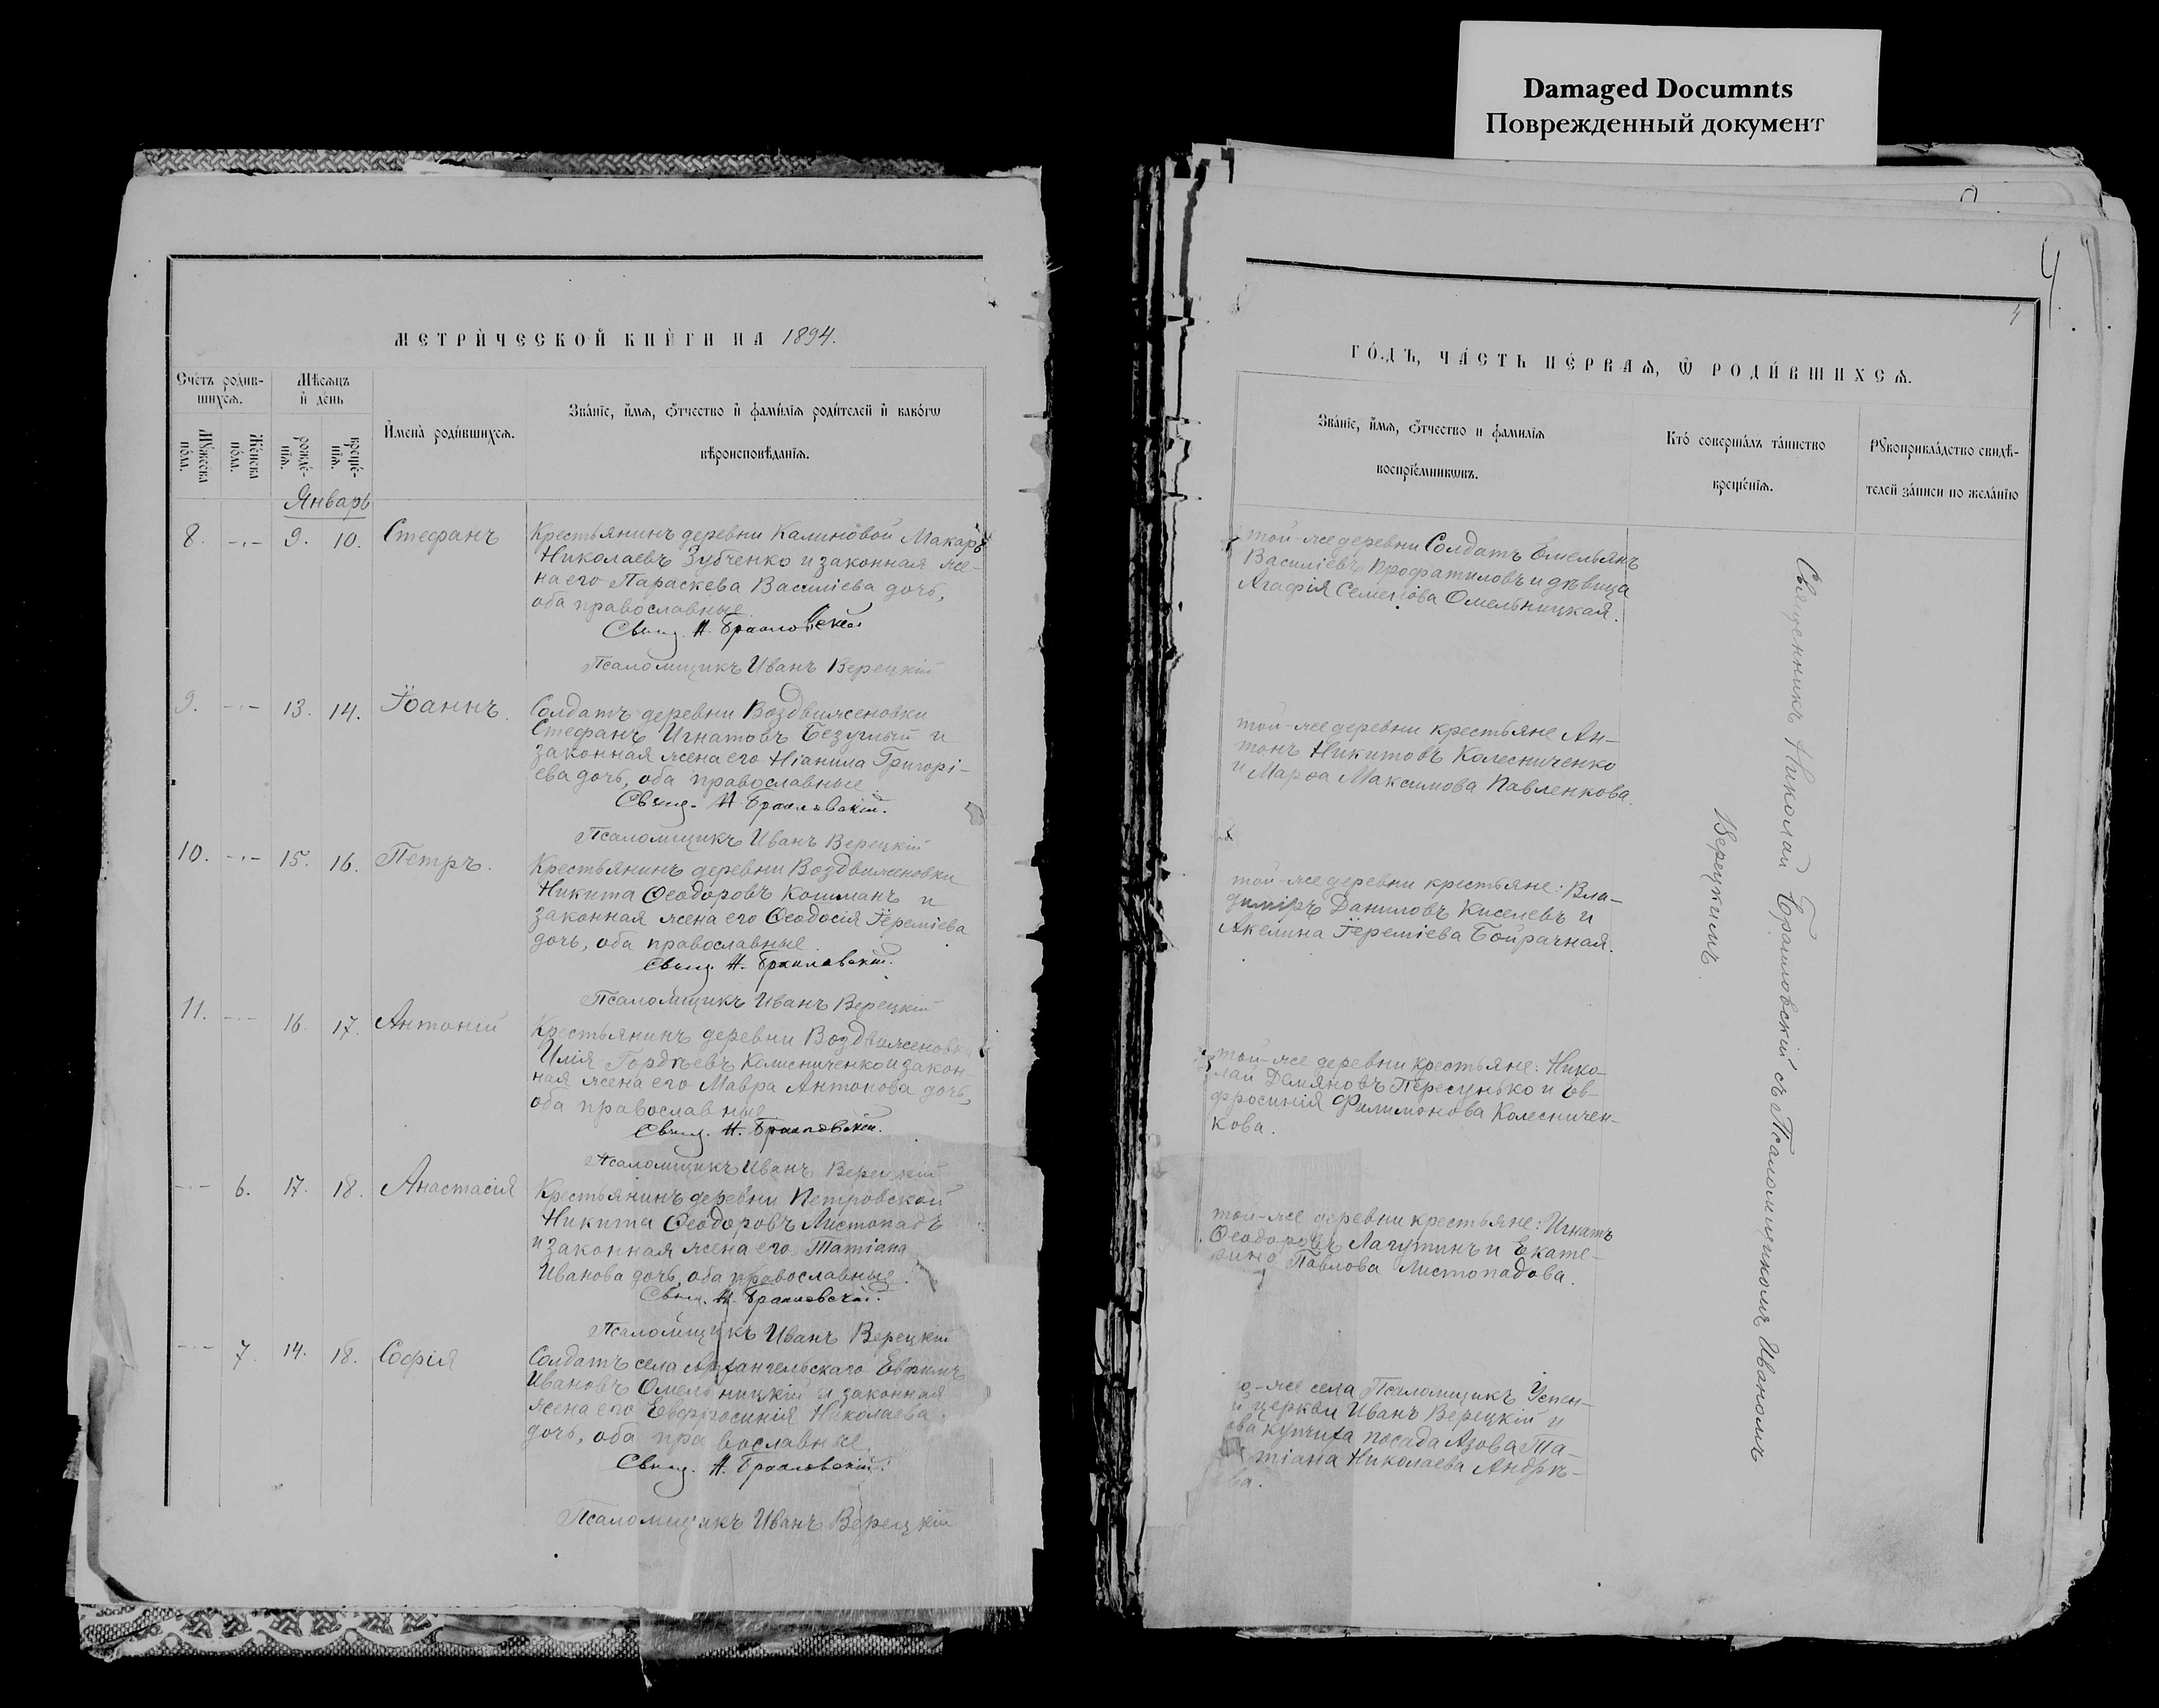 Damaged Documnts
Поврежденный документ
4.
4
МЕТРИЧЕСКОЙ КНИГИ НА 1894.
Счетъ родив-
шихся.
Мѣсяцъ
и день
Мужеска
пола.
Женска
пола.
рожде-
нія.
креще-
нія.
Имена родившихся.
Званіе, имя, отчество и фамилія родителей и какогѡ
вѣроисповѣданія.
Январь
8. -.- 9. 10. Стефанъ
Крестьянинъ деревни Калиновой Макаръ
Николаевъ Зубченко и законная же-
на его Параскева Василіева дочь,
оба православные.
Свящ. Н. Браиловскій
Псаломщикъ Иванъ Верецкій
9. -.- 13. 14. Іоаннъ.
Солдатъ деревни Воздвиженовки
Стефанъ Игнатовъ Безуглый и
законная жена его Ніанила Григорі-
ева дочь, оба православные
Свящ. Н. Браиловскій.
Псаломщикъ Иванъ Верецкій
10. -.- 15. 16. Петръ.
Крестьянинъ деревни Воздвиженовки
Никита Ѳеодоровъ Кошманъ и
законная жена его Ѳеодосія Іереміева
дочь, оба православные.
Свящ. Н. Браиловскій.
Псаломщикъ Иванъ Верецкій
11. -.- 16. 17. Антоній
Крестьянинъ деревни Воздвиженовки
Илія Гордѣевъ Колисниченко и закон-
ная жена его Мавра Антонова дочь,
оба православные
Свящ. Н. Браиловскій.
Псаломщикъ Иванъ Верецкій
-.- 6. 17. 18. Анастасія
Крестьянинъ деревни Петровской
Никита Ѳеодоровъ Листопадъ
и законная жена его Татіана
Иванова дочь, оба православные.
Свящ. Н. Браиловскій.
Псаломщикъ Иванъ Верецкій
-.- 7. 14. 18. Софія
Солдатъ села Архангельскаго Евфимъ
Ивановъ Омельницкій и законная
жена его Евфросинія Николаева
дочь, оба православные.
Свящ. Н. Браиловскій.
Псаломщикъ Иванъ Верецкій
ГОДЪ, ЧАСТЬ ПЕРВАЯ, Ѡ РОДИВШИХСЯ.
Званіе, имя, отчество и фамилія
воспріемникѡвъ.
Кто совершалъ таинство
крещенія.
Рукоприкладство свидѣ-
телей записи по желанію
той-же деревни Солдатъ Емельянъ
Василіевъ Профатиловъ и дѣвица
Агафія Семенова Омельницкая.
той-же деревни крестьяне Ан-
тонъ Никитовъ Колесниченко
и Марѳа Максимова Павленкова.
той-же деревни крестьяне: Вла-
димиръ Даниловъ Киселевъ и
Акелина Іереміева Бойрачная.
той-же деревни крестьяне: Нико-
лай Демяновъ Пересунько и Ев-
фросинія Филимонова Колесничен-
кова.
той-же деревни крестьяне: Игнатъ
Ѳеодоровъ Лагутинъ и Екате-
рина Павлова Листопадова.
о-же села Псаломщикъ Успен-
й церкви Иванъ Верецкій и
купчиха посада Азова Та-
тіана Николаева Андрѣ-
ва.
Священникъ Николай Браиловскій съ Псаломщикомъ Иваномъ
Верецкимъ.